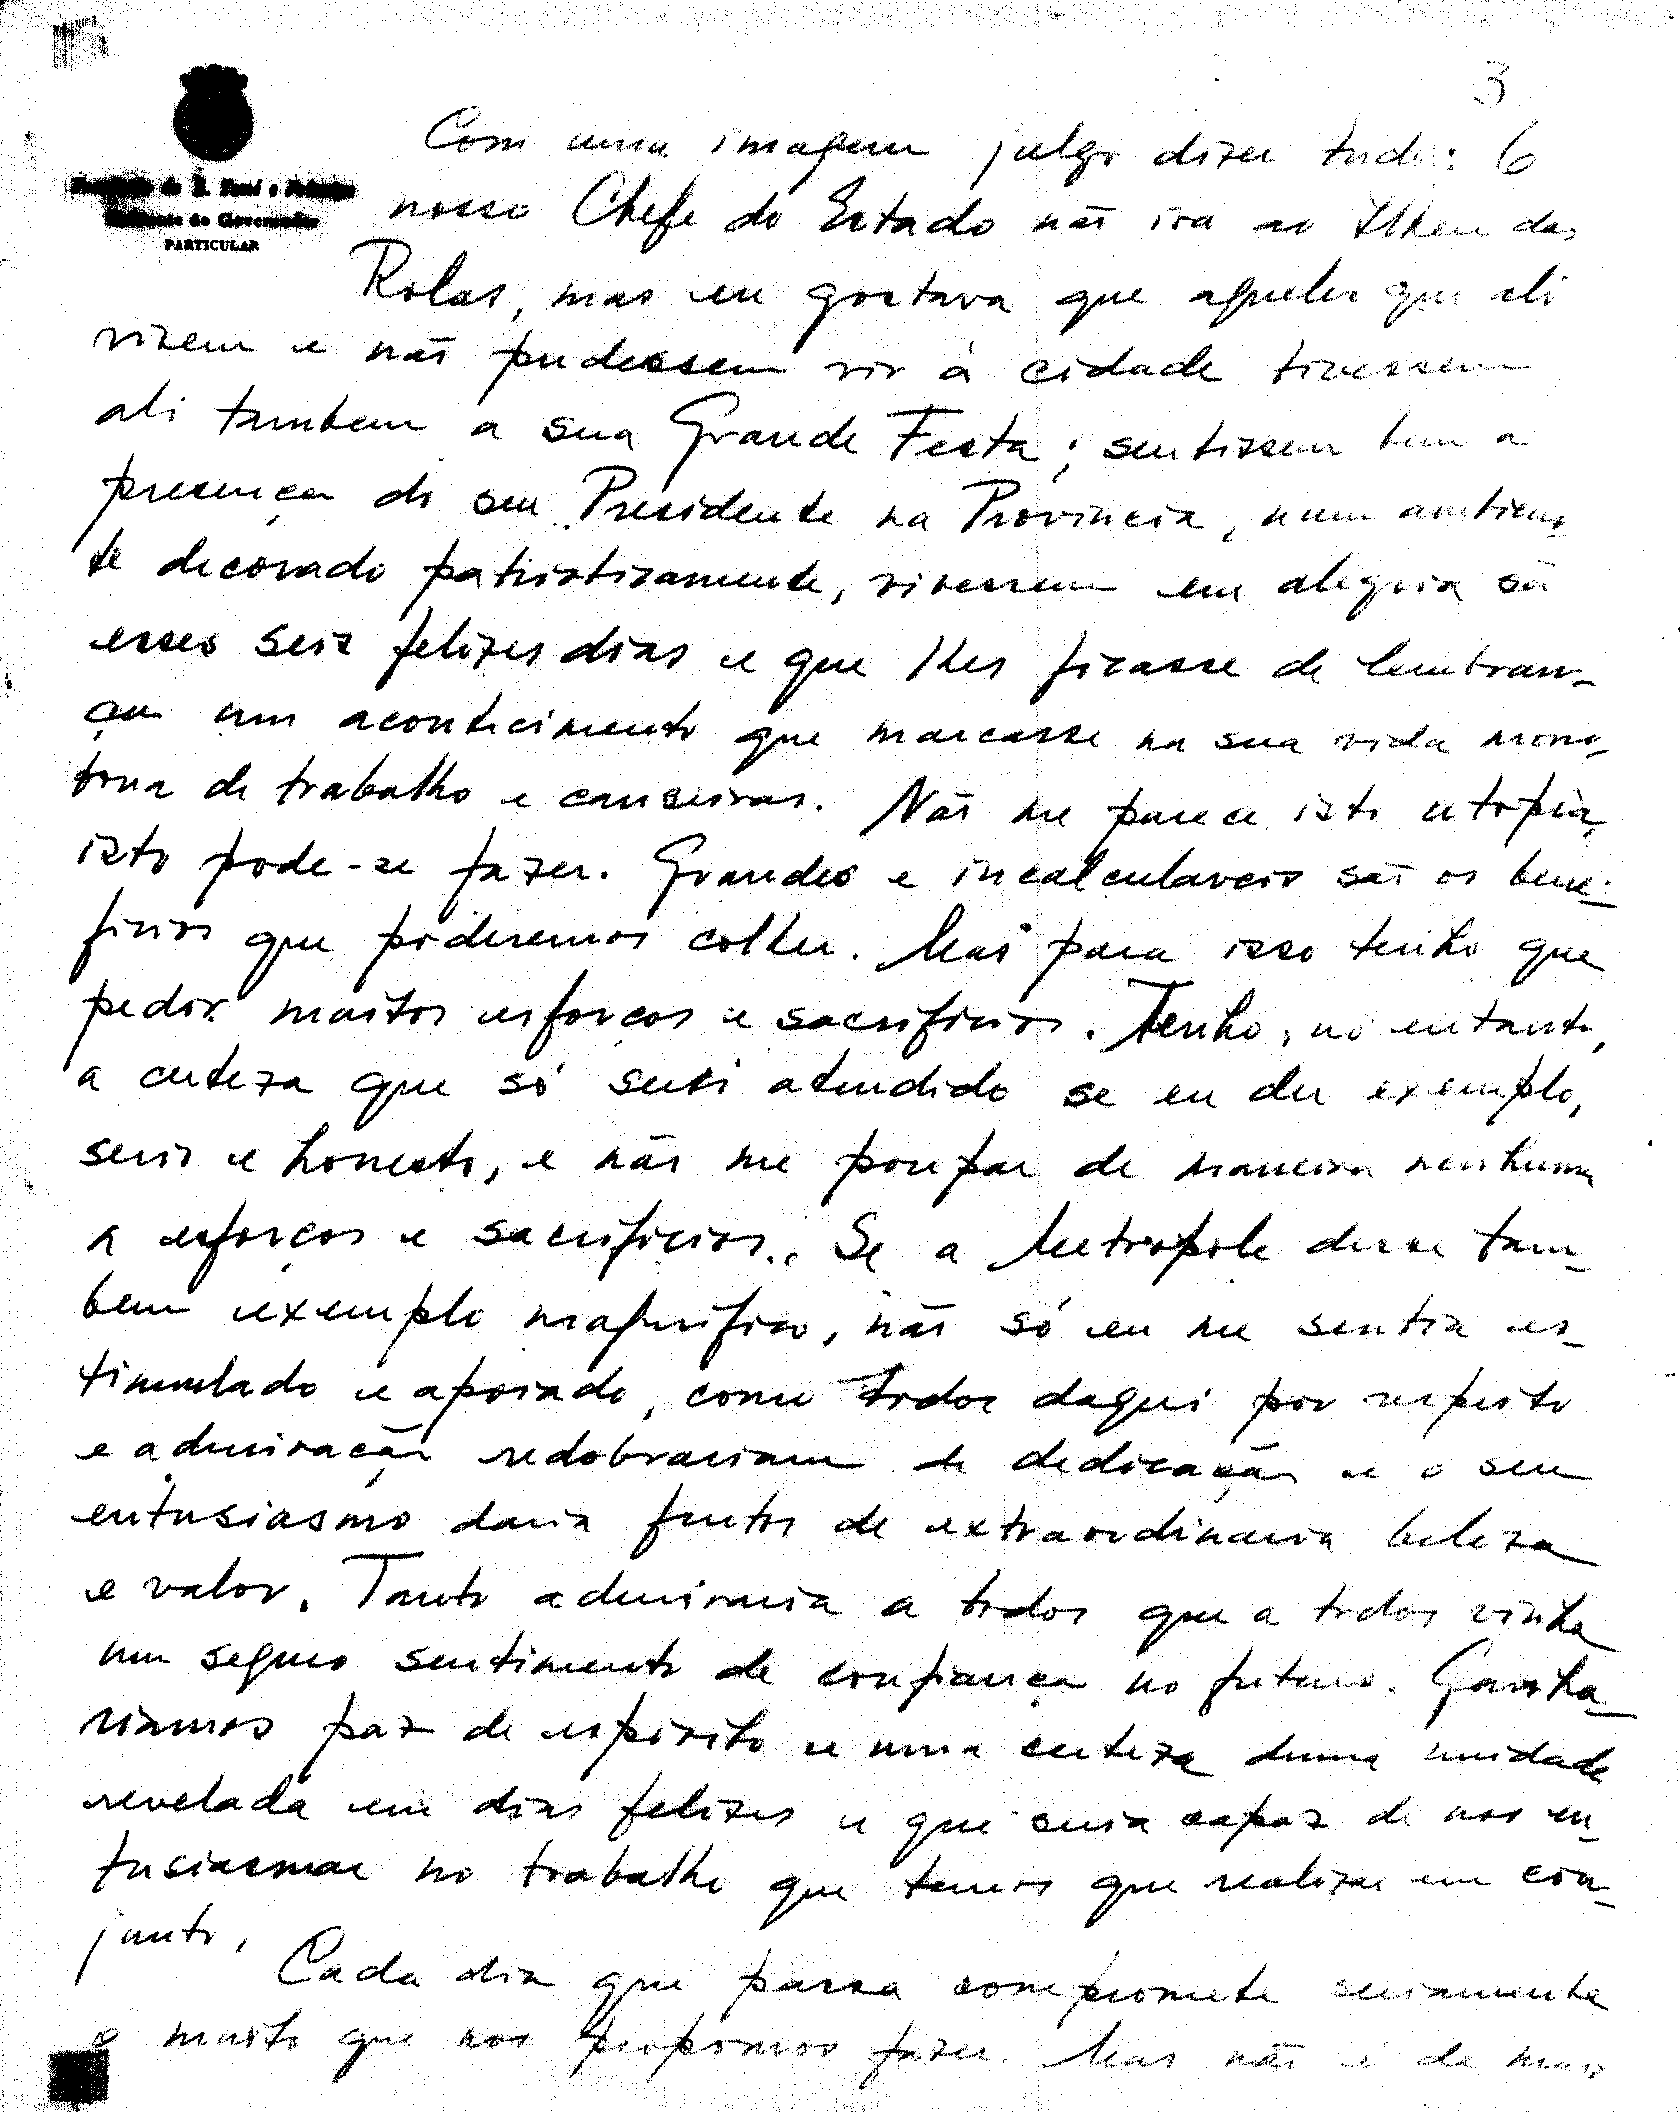 3
Província de S. Tomé e Príncipe
Gabinete do Governador
PARTICULAR
Com uma imagem julgo dizer tudo: O
nosso Chefe do Estado não irá ao Ilheu das
Rolas, mas eu gostava que aqueles que ali
vivem e não pudessem vir à cidade tivessem
ali tambem a sua Grande Festa; sentissem bem a
presença do seu Presidente na Provincia, num ambien-
te decorado patrioticamente, vivessem em alegria sã
esses seis felizes dias e que lhes ficasse de lembran-
ça um acontecimento que marcasse na sua vida mono-
tona de trabalho e canseiras. Não me parece isto utopia,
isto pode-se fazer. Grandes e incalculaveis são os bene-
ficios que poderemos colher. Mas para isso tenho que
pedir muitos esforços e sacrificios. Tenho, no entanto,
a certeza que só serei atendido se eu der exemplo,
serio e honesto, e não me poupar de maneira nenhuma
a esforços e sacrificios. Se a Metropole desse tam-
bem exemplo magnifico, não só eu me sentia es-
timulado e apoiado, como todos daqui por respeito
e admiração redobrariam de dedicação e o seu
entusiasmo daria frutos de extraordinaria beleza
e valor. Tanto admiraria a todos que a todos vinha
um seguro sentimento de confiança no futuro. Ganha-
riamos paz de espirito e uma certeza duma unidade
revelada em dias felizes e que seria capaz de nos en-
tusiasmar no trabalho que temos que realizar em con-
junto.
Cada dia que passa compromete seriamente
o muito que nos propomos fazer. Mas não é de mais